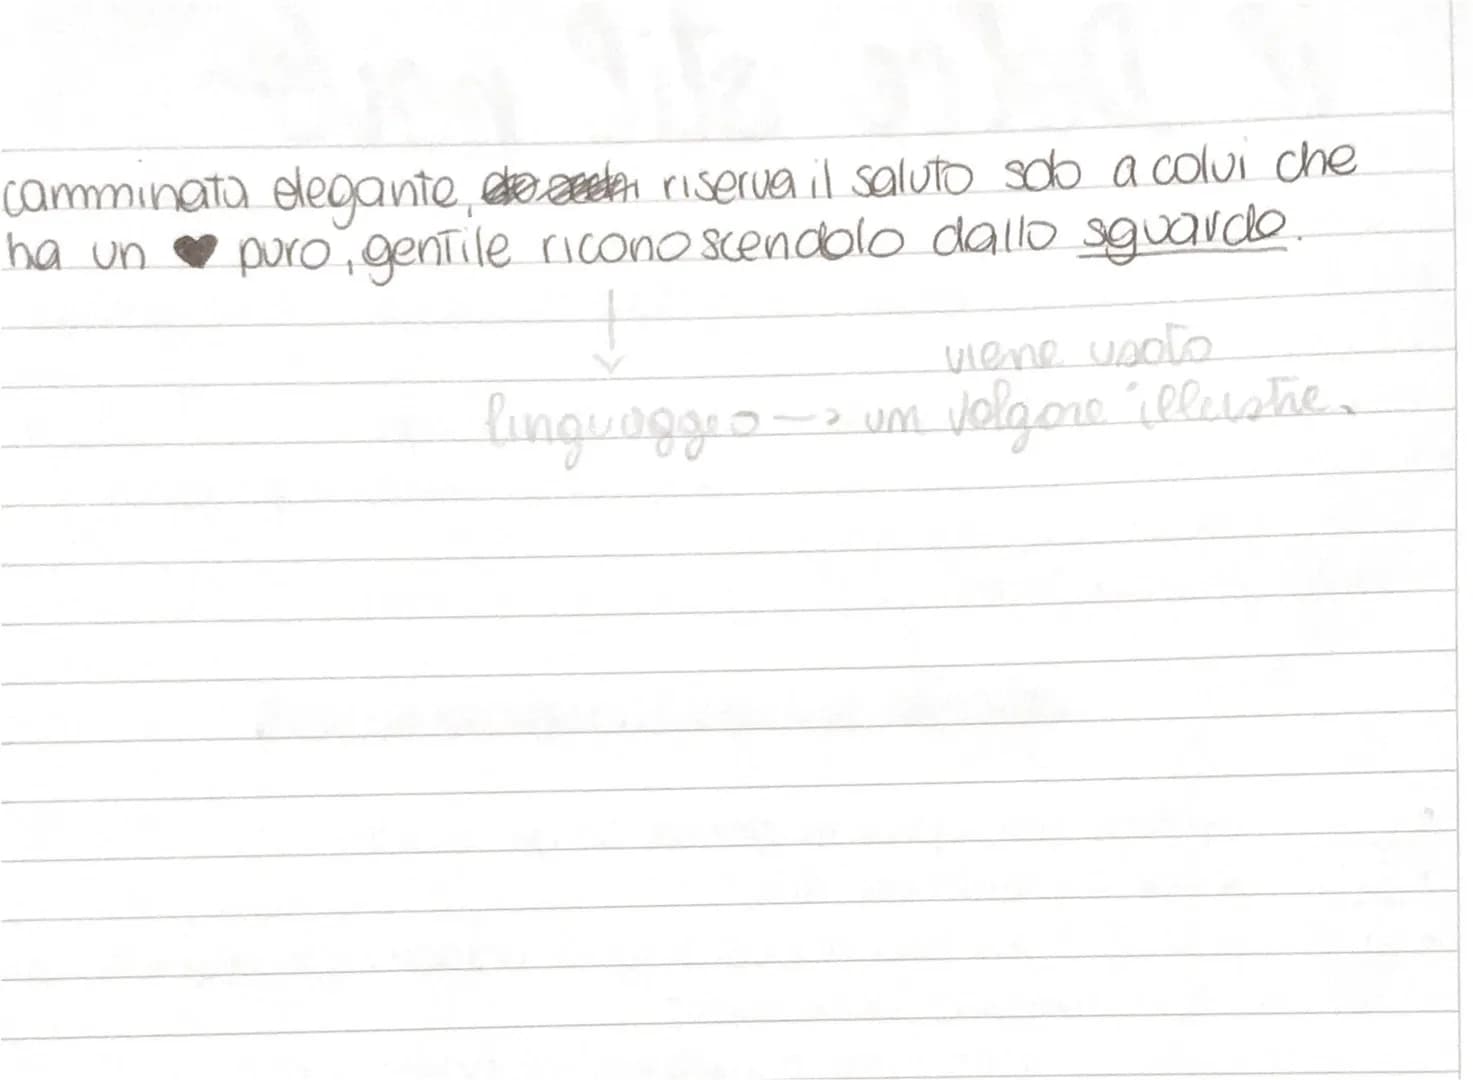 camminata elegante, riserva il saluto solo a colui che
ha un ♥ puro, gentile riconoscendolo dallo sguardo.
↓
viene usato
linguaggio → um volgare illustre.